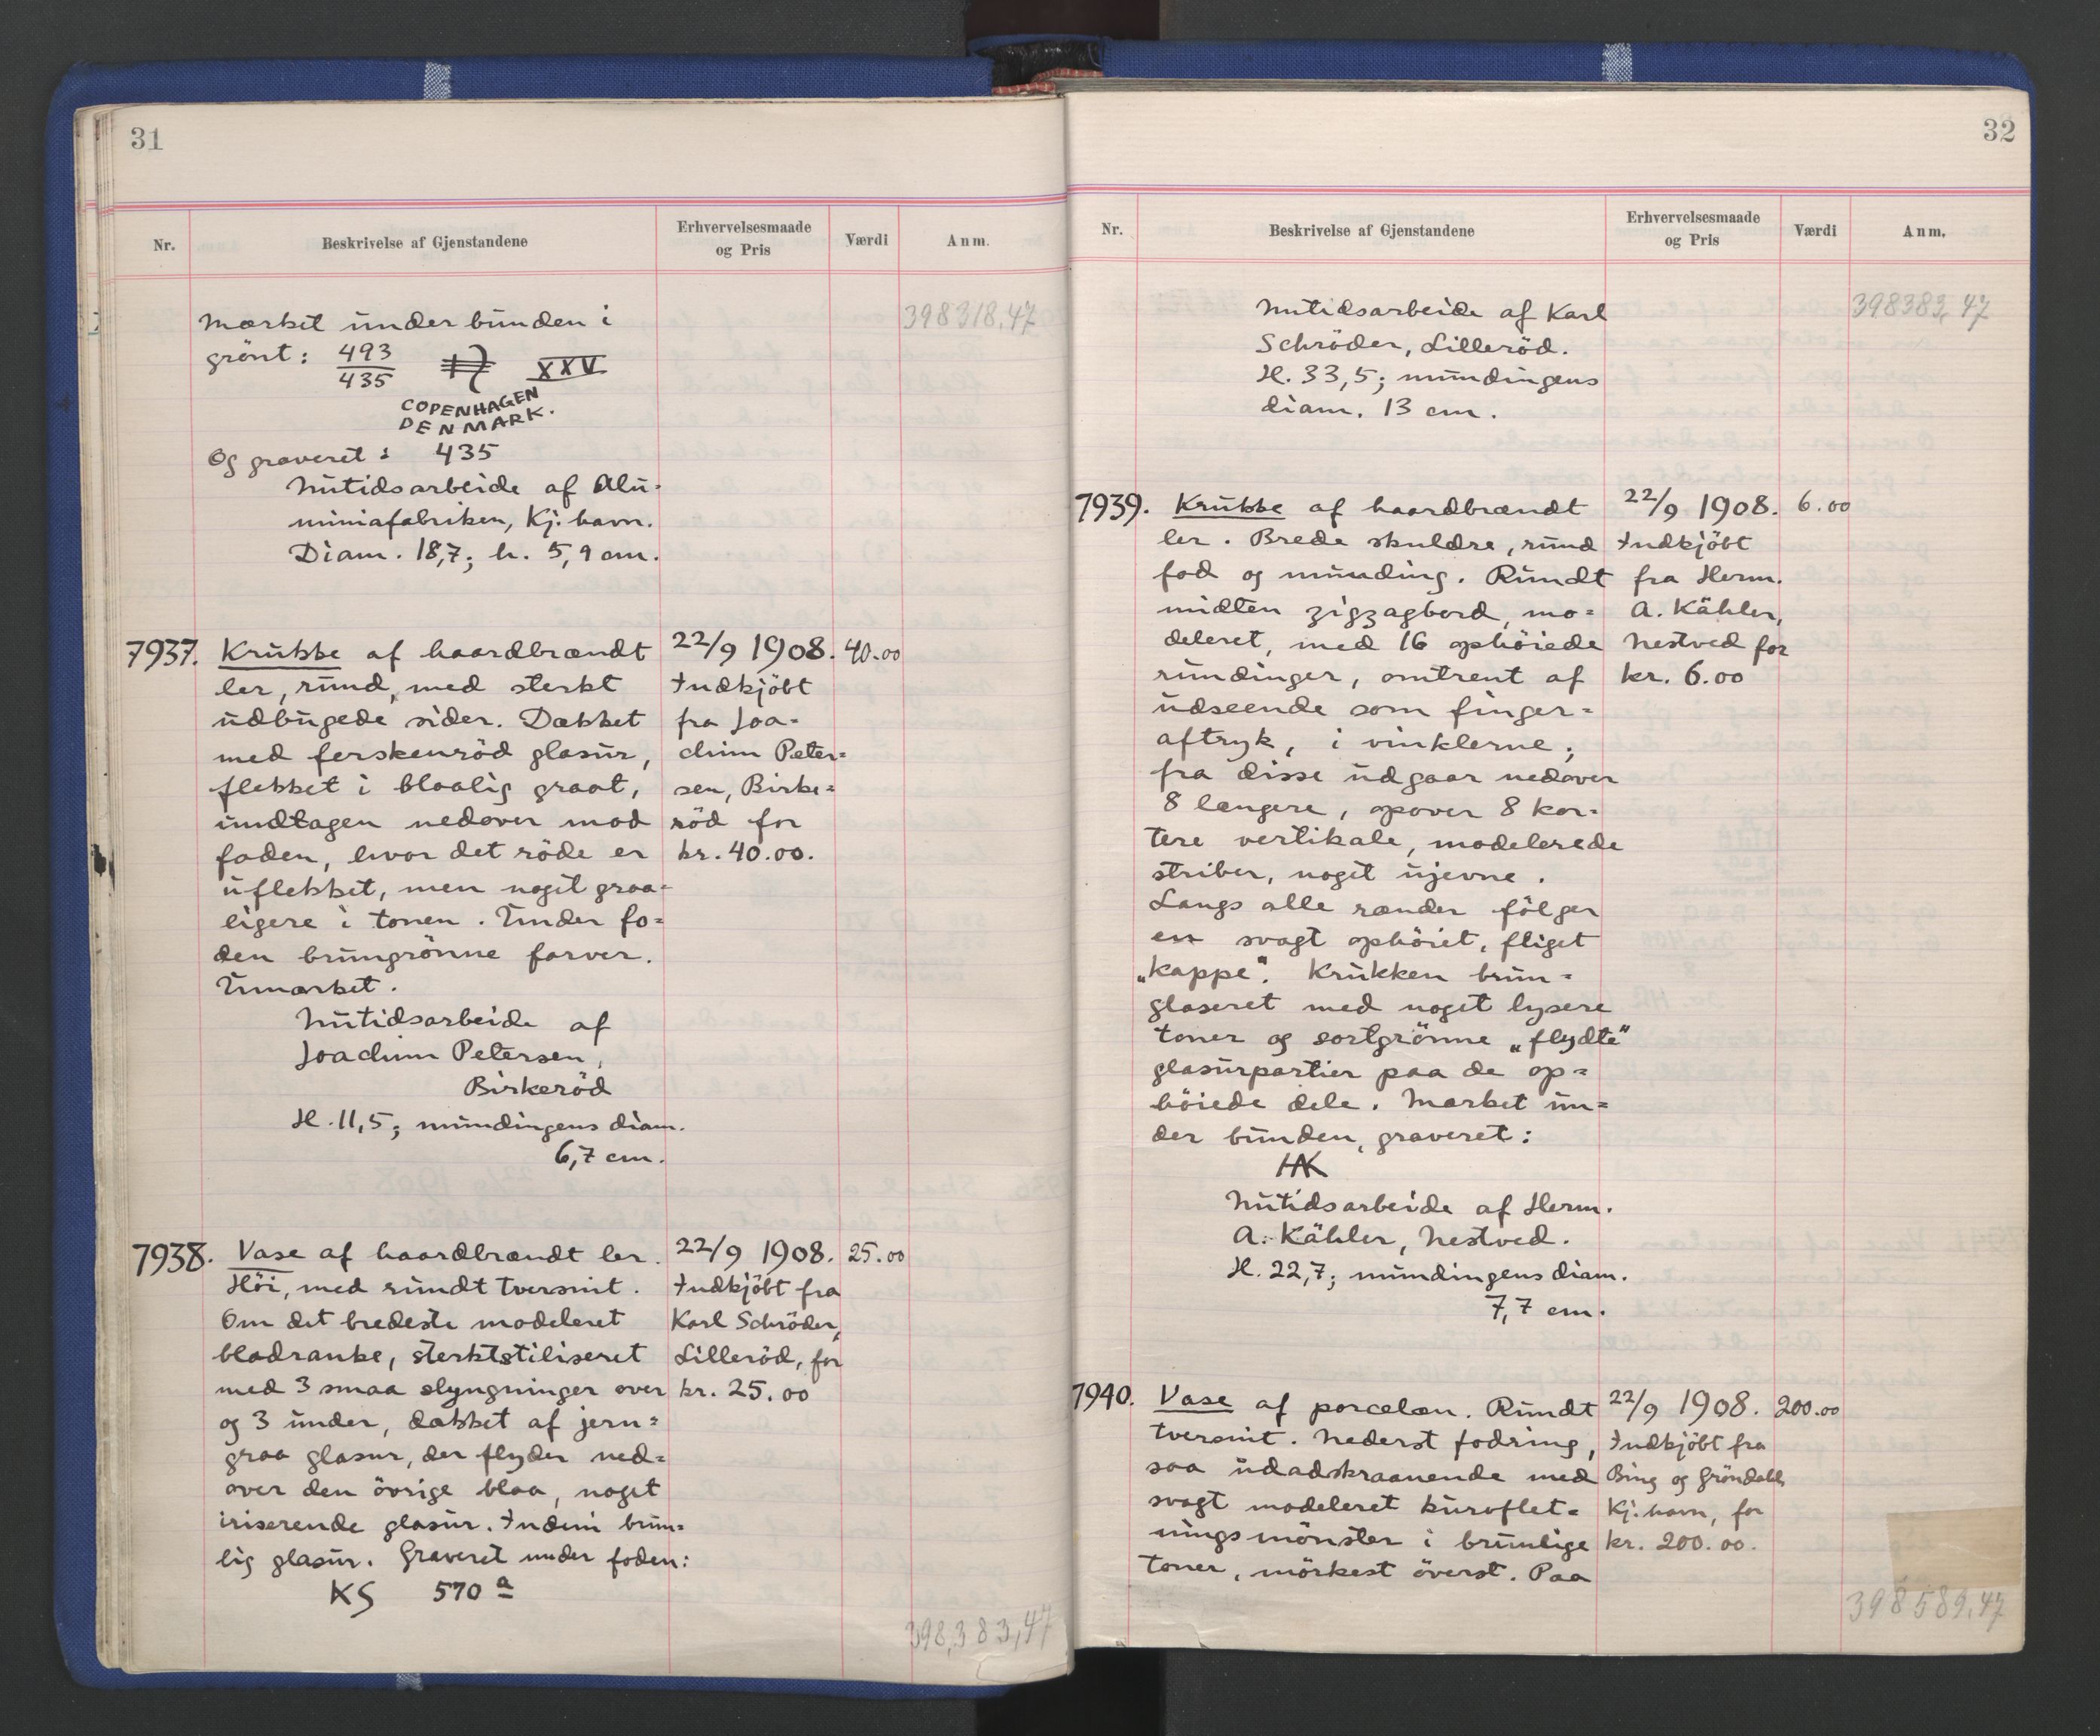 31
Nr.
Beskrivelse af Gjenstandene
Erhvervelsesmaade
og Pris
Værdi
Anm.
398318,47
Mærket under bunden i
grönt: 493
435
XXV
COPENHAGEN
DENMARK.
Og graveret: 435
Nutidsarbeide af Alu-
miniafabriken, Kj.havn.
Diam. 18,7; h. 5,9 cm.
7937. Krukke af haardbrændt
ler, rund, med sterkt
udbugede sider. Dækket
med ferskenröd glasur,
flekket i blaalig graat,
undtagen nedover mod
foden, hvor det röde er
uflekket, men noget graa-
ligere i tonen. Under fo-
den brungrönne farver.
Umærket.
Nutidsarbeide af
Joachim Petersen,
Birkeröd
H. 11,5; mundingens diam.
6,7 cm.
22/9 1908. 40.00
Indkjöbt
fra Joa-
chim Peter-
sen, Birke-
röd for
kr. 40.00.
7938. Vase af haardbrændt ler.
Höi, med rundt tversnit.
Om det bredeste modeleret
bladranke, sterktstiliseret
med 3 smaa slyngninger over
og 3 under, dækket af jern-
graa glasur, der flyder ned-
over den övrige blaa, noget
iriserende glasur. Indeni brun-
lig glasur. Graveret under foden:
KS 570 a
22/9 1908. 25.00
Indkjöbt fra
Karl Schröder,
Lilleröd, for
kr. 25.00
398,383,47
32
Nr.
Beskrivelse af Gjenstandene
Erhvervelsesmaade
og Pris
Værdi
Anm.
398383,47
Nutidsarbeide af Karl
Schröder, Lilleröd.
H. 33,5; mundingens
diam. 13 cm.
7939. Krukke af haardbrændt
ler. Brede skuldre, rund
fod og munding. Rundt
midten zigzagbord, mo-
deleret, med 16 ophöiede
rundinger, omtrent af
udseende som finger-
aftryk, i vinklerne;
fra disse udgaar nedover
8 længere, opover 8 kor-
tere vertikale, modelerede
striber, noget ujevne.
Langs alle rænder fölger
en svagt ophöiet, fliget
„kappe“. Krukken brun-
glaseret med noget lysere
toner og sortgrönne „flydte“
glasurpartier paa de op-
höiede dele. Mærket un-
der bunden, graveret:
HAK
Nutidsarbeide af Herm.
A. Kähler, Nestved.
H. 22,7; mundingens diam.
7,7 cm.
22/9 1908. 6.00
Indkjöbt
fra Herm.
A. Kähler,
Nestved for
kr. 6.00
7940. Vase af porcelæn. Rundt
tversnit. Nederst fodring,
saa udadskraanende med
svagt modeleret kurvflet-
ningsmönster i brunlige
toner, mörkest överst. Paa
22/9 1908. 200.00
Indkjöbt fra
Bing og Gröndahl,
Kj.havn, for
kr. 200.00.
398589,47